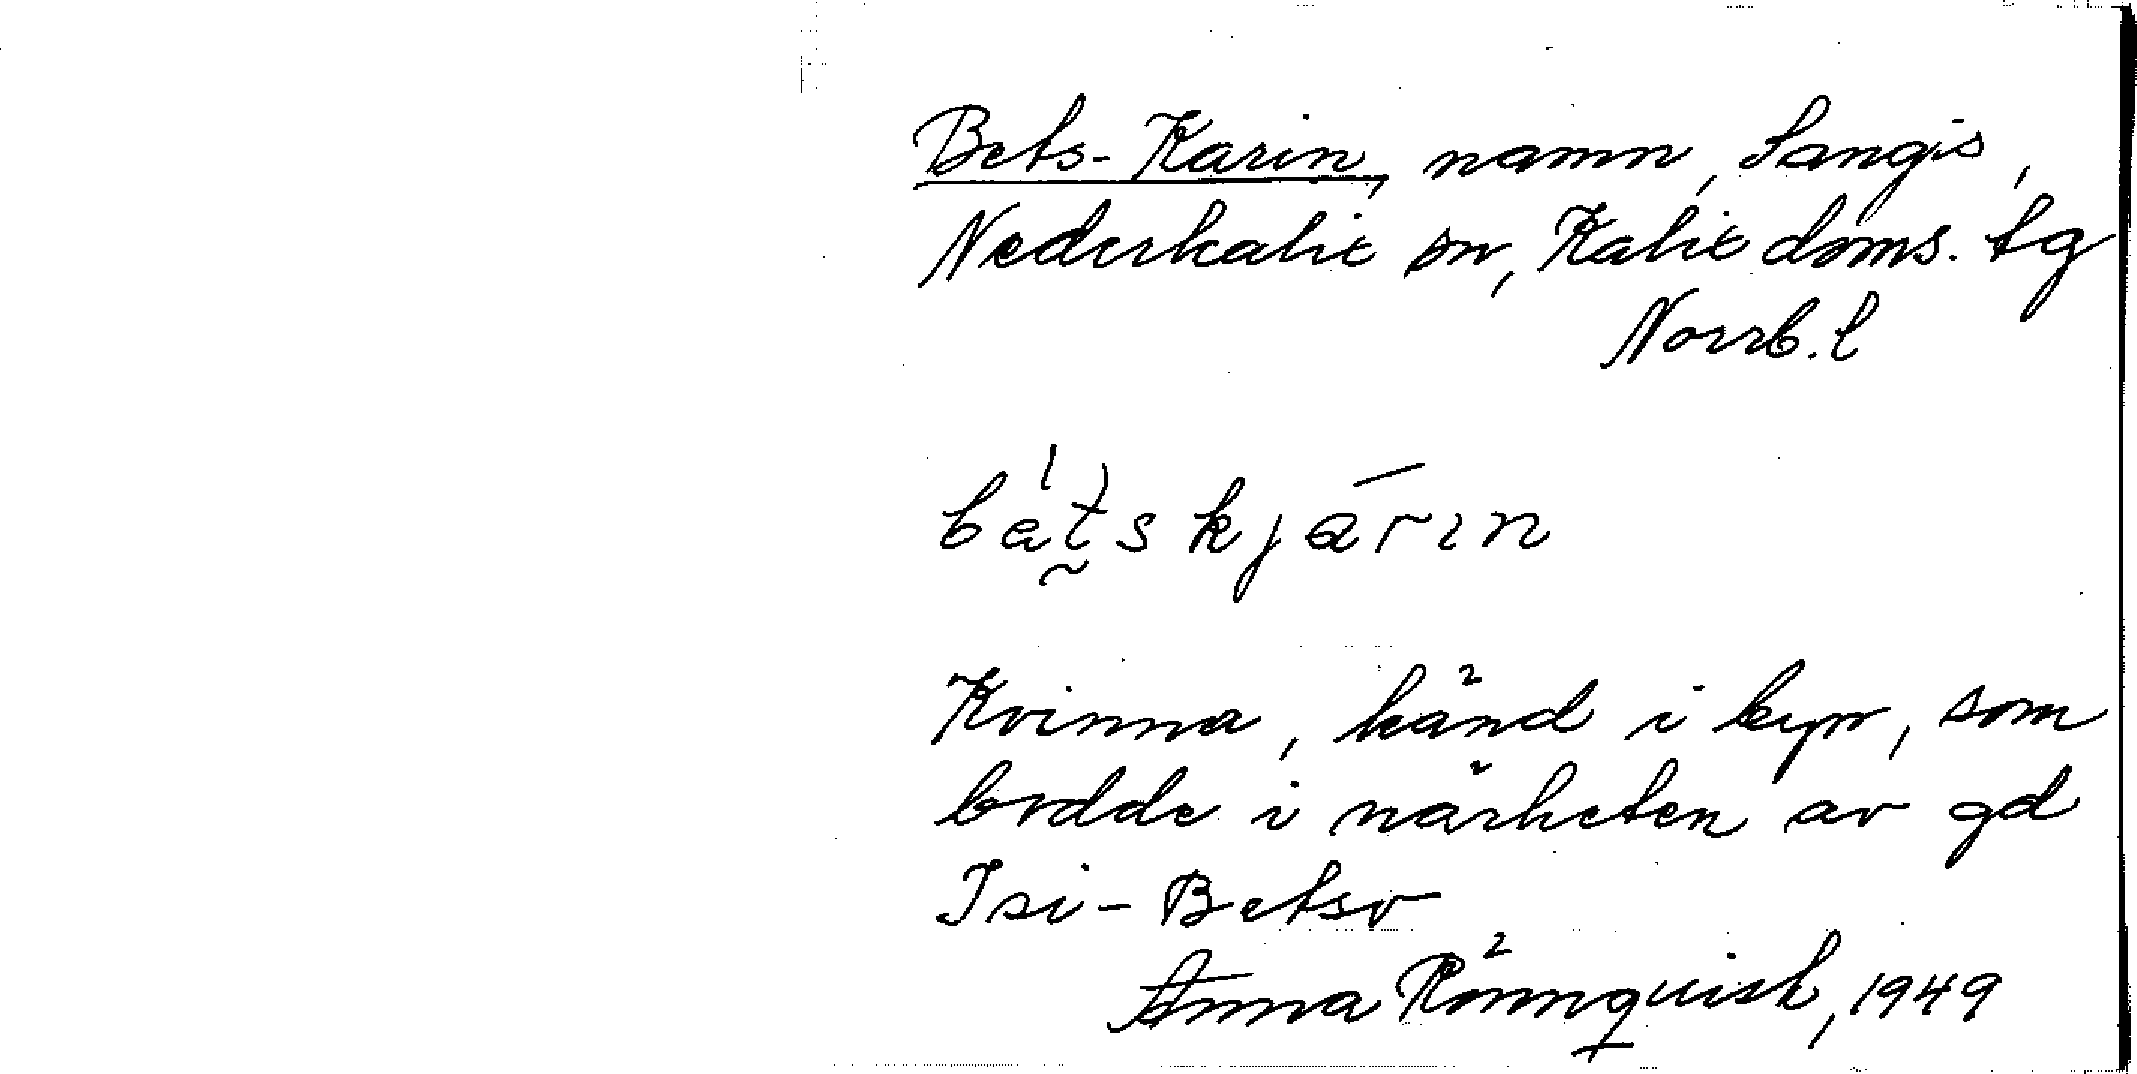 Bets-Karin, namn, Sangis,
Nederkalix sn, Kalix doms. tg
Norrb. l
bätskjārin
Kvinna, känd i byn, som
bodde i närheten av gd
Isi-Betso
Anna Rönnquist, 1949